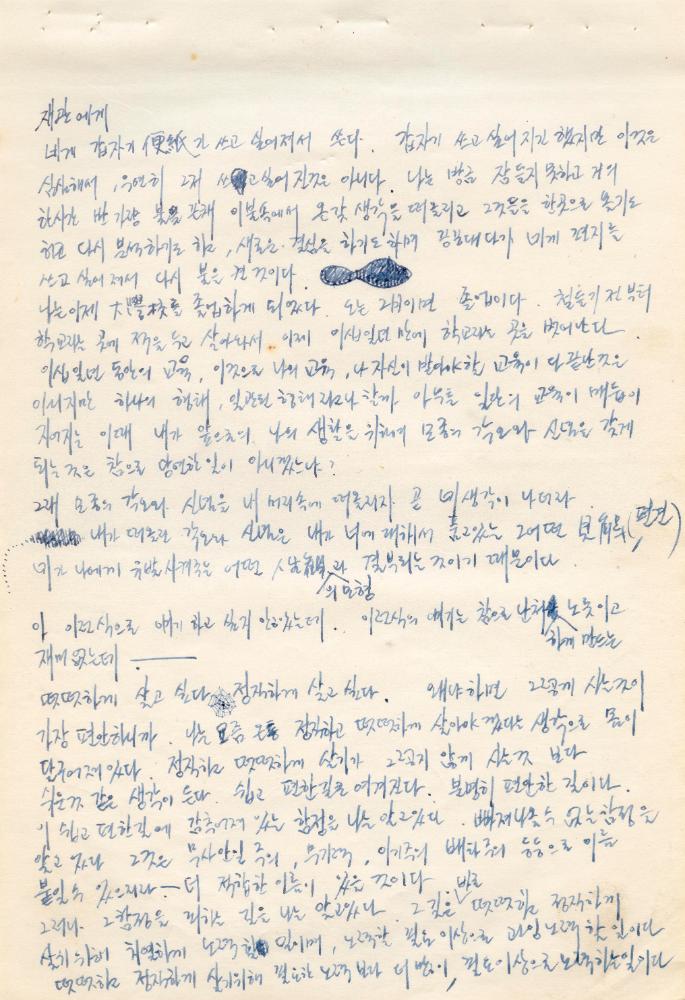 재관에게
네게 갑자기 便紙가 쓰고 싶어져서 쓴다. 갑자기 쓰고 싶어지긴 했지만 이것은
심심해서, 우연히 그저 쓰고 싶어진것은 아니다. 나는 방금 잠들지 못하고 거의
한시간 반 가량 불을 끈채 이불속에서 온갖 생각을 떠올리고 그것들을 한곳으로 옮기도
하고 다시 분석하기도 하고, 새로운 결심을 하기도 하며 끙끙대다가 네게 편지를
쓰고 싶어져서 다시 불을 켠 것이다.
나는 이제 大學校를 졸업하게 되었다. 오는 이면 졸업이다. 철들기 전부터
학교라는 곳에 적을 두고 살아와서 이제 이십일년 만에 학교라는 곳을 벗어난다.
이십일년 동안의 교육, 이것으로 나의 교육, 나 자신이 받아야 할 교육이 다 끝난것은
아니지만 하나의 형태, 일관된 형태라고나 할까 아무튼 일단의 교육이 매듭이
지어지는 이때 내가 앞으로의 나의 생활을 위하여 모종의 각오와 신념을 갖게
되는 것은 참으로 당연한 일이 아니겠느냐?
그래 모종의 각오와 신념을 내 머리속에 떠올리자 곧 네 생각이 나더라.
내가 떠올린 각오와 신념은 내가 너에 대해서 품고있는 그 어떤 見解(편견)
네가 나에게 유발시켜주는 어떤 人生觀과 결부되는 것이기 때문이다.
의 모형
아 이런식으로 얘기하고 싶지 않았는데. 이런식의 얘기는 참으로 노릇이고
하게 만드는
재미없는데 ―
떳떳하게 살고 싶다. 정직하게 살고 싶다. 왜냐하면 그렇게 사는것이
가장 편안하니까. 나는 요즘 정직하고 떳떳하게 살아야겠다는 생각으로 몸이
달구어져있다. 정직하고 떳떳하게 살기가 그렇지 않게 사는것 보다
쉬운것 같은 생각이 든다. 쉽고 편한길로 여겨진다. 분명히 편안한 길이다.
이 쉽고 편한길에 감추어져 있는 함정을 나는 알고있다. 빠져나올수 없는 함정을
알고 있다. 그것은 무사안일 주의, 무기력, 이기주의 배타주의 등등으로 이름
붙일수 있으리라 ― 더 적합한 이름이 있을 것이다.
그러나 그 함정을 피하는 길을 나는 알고있다. 그 길은 바로 떳떳하고 정직하게
살기위해 치열하게 노력할 일이며, 노력할 필요 이상으로 과잉 노력할 일이다.
떳떳하고 정직하게 살기위해 필요한 노력보다 더 많이, 필요이상으로 노력하는 일이다